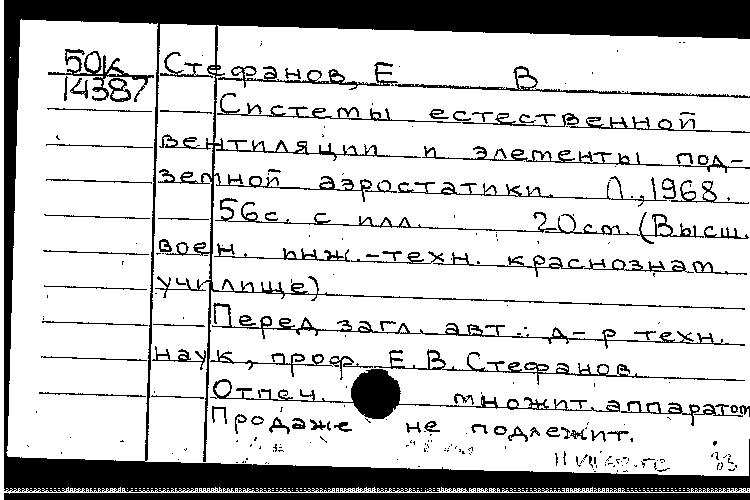 50к Стефанов, Е В
14387
Системы естественной
вентиляции и элементы под-
земной аэростатики. Л., 1968.
56с. с илл. 20см. (Высш.
воен. инж.-техн. краснознам.
училище).
Перед загл. авт.: д-р техн.
наук, проф. Е.В. Стефанов.
Отпеч. множит. аппаратом
Продаже не подлежит.